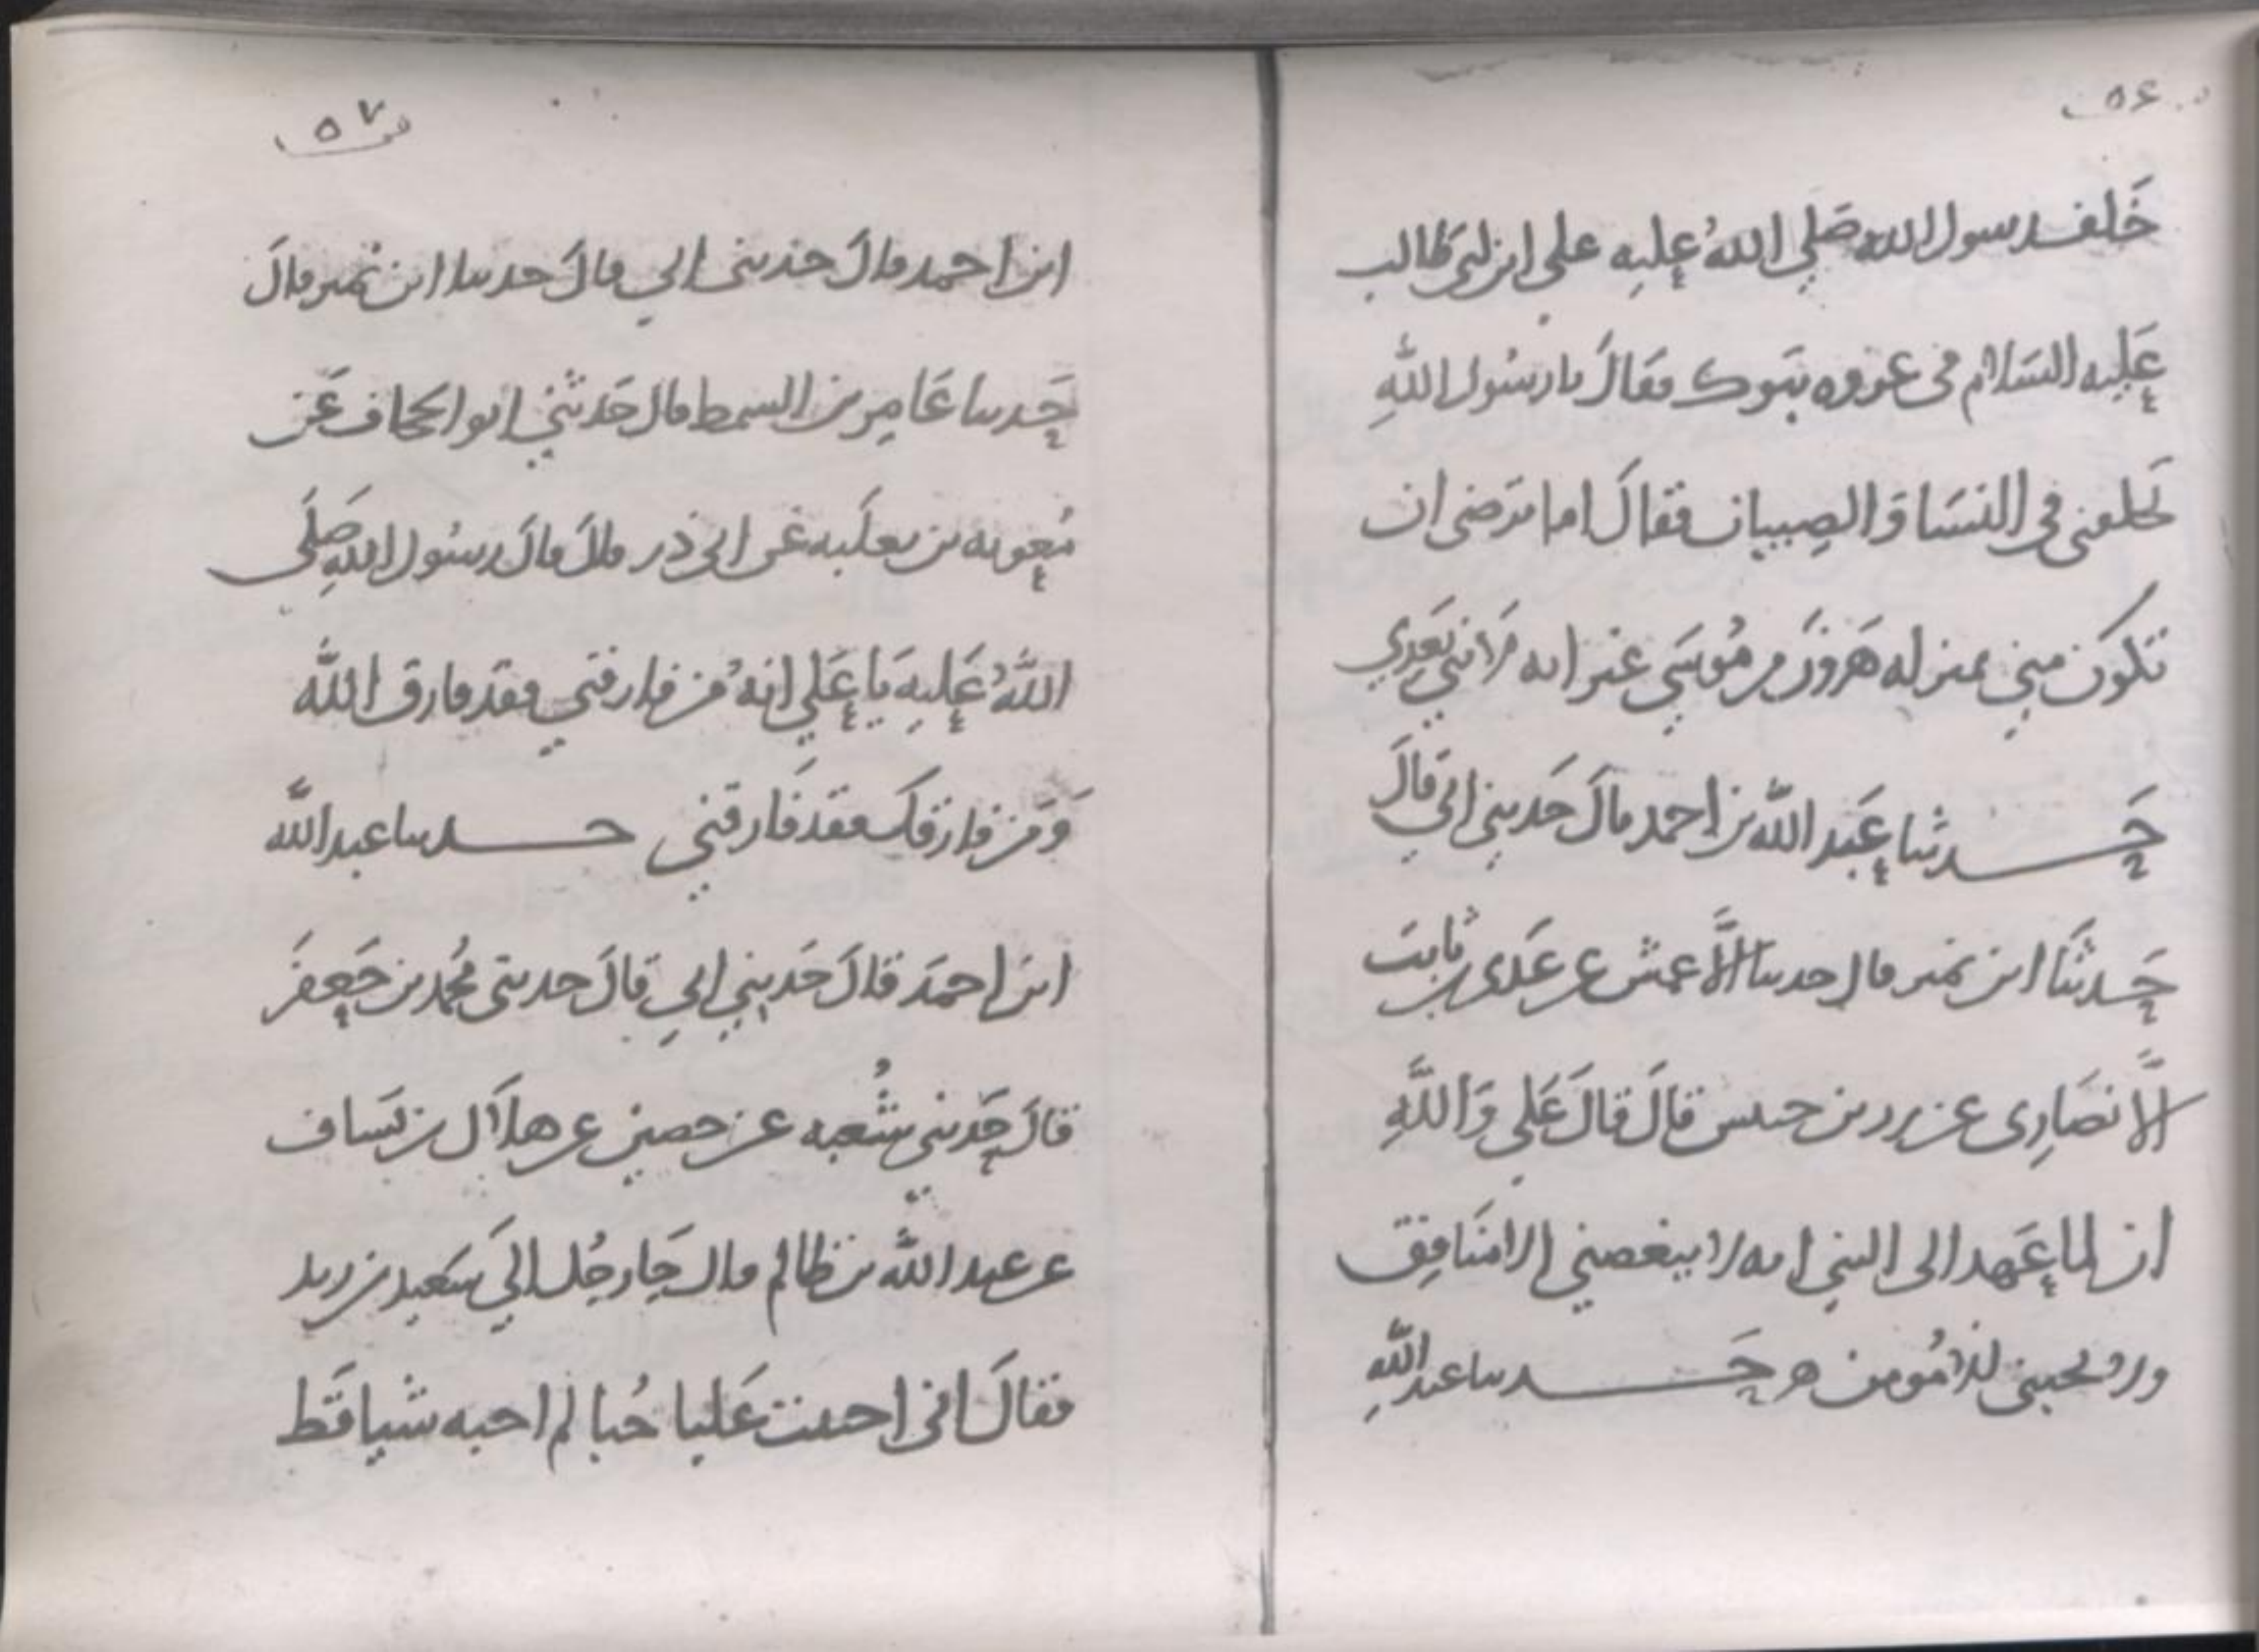 ص ٥٦
خلف رسول الله صَلي اللهُ عليه علي ابن ابي طالب
عَليه السَلام في غزوه تبوك فقالَ يا رسُول اللهِ
تخلفني في النسَا وَالصِبيان فقالَ اما ترضى ان
تكونَ مني بمنزله هَرونَ من مُوسَي غير انه لا نبي بَعدي
حَدثنا عَبد الله بن احمد قالَ حَدثني ابي قالَ
حَدثنَا ابن نمير قال حدثنا الأعمش عن عَدي بن ثابت
الأنصَارِي عن زر بن حبيش قالَ قالَ عَلي وَاللَّهِ
ان لما عَهد الى النبي انه لا يبغضني الا منَافِق
ولا يحبني الا مُومن ه حَدثنا عبد اللهِ
ص ٥٧
ابن احمد قالَ حَدثني ابي قالَ حدثنا ابن نُمير قالَ
حَدثنا عَامِر بن السمط قال حَدثني ابو الجحاف عَن
مُعويه بن ثعلَبه عَن ابي ذر قالَ قالَ رسُول اللهِ صَلَي
اللهُ عَليهِ يَا عَلي انهُ مَن فارقني فقد فارق الله
وَمَن فارقك فقد فَارقني حدثنا عبد اللَّه
ابن احمدَ قالَ حَدثني ابي قالَ حدثني مُحمد بن جَعفَر
قالَ حَدثني شُعبه عن حصين عن هلَال بن يَسَاف
عن عبد الله بن ظالم قال جَا رجُل الي سَعيد بن زيد
فقالَ اني احببت عَليا حُبا لم احبه شيا قَط